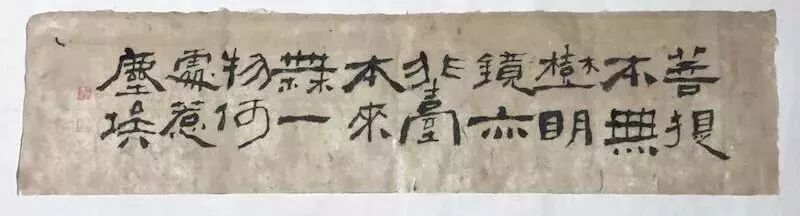 菩提
本無
樹明
鏡亦
非臺
本來
無一
物何
處惹
塵埃